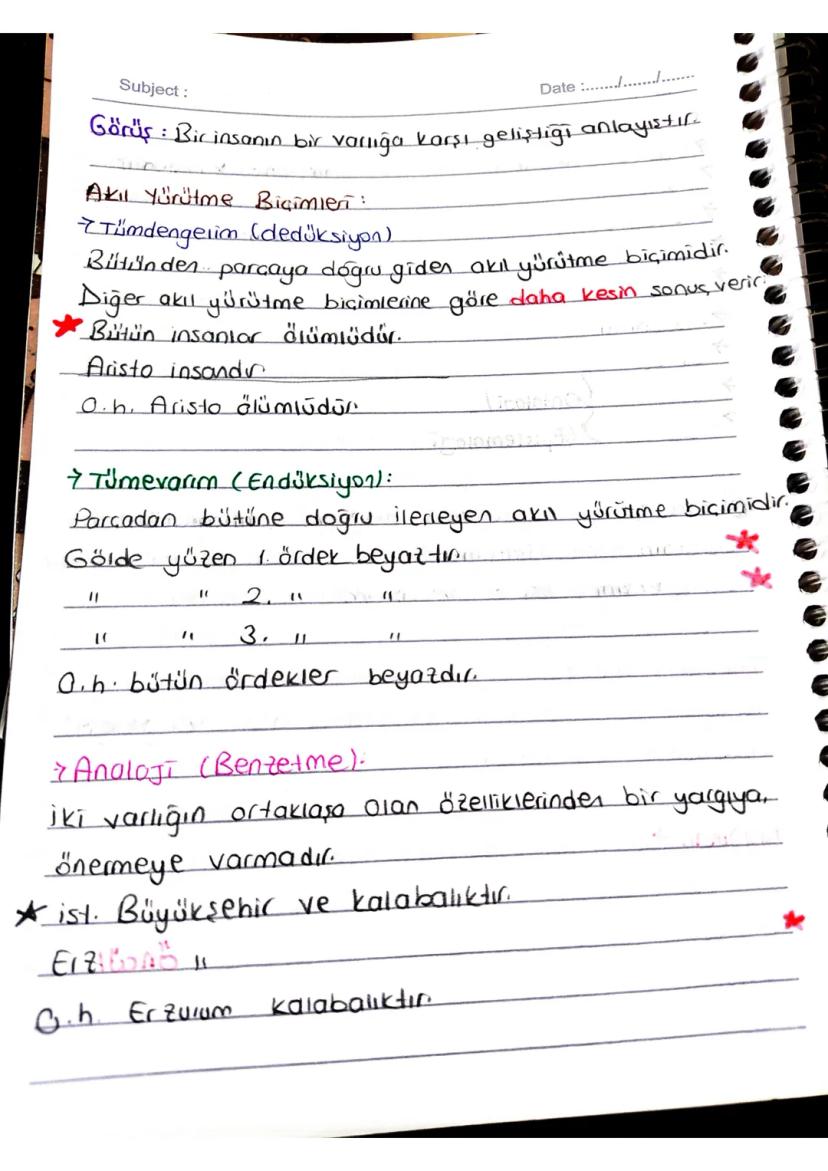 Subject :
Date :......./......./.......
Görüş : Bir insanın bir varlığa karşı geliştiği anlayıştır.
Akıl Yürütme Biçimleri :
→ Tümdengelim (dedüksiyon)
Bütünden parçaya doğru giden akıl yürütme biçimidir.
Diğer akıl yürütme biçimlerine göre daha kesin sonuç verir.
★ Bütün insanlar ölümlüdür.
Aristo insandır.
O.h. Aristo ölümlüdür.
→ Tümevarım (Endüksiyon):
Parçadan bütüne doğru ilerleyen akıl yürütme biçimidir.
Gölde yüzen 1. ördek beyaztır. ★
" " 2. " " ★
" " 3. " "
O.h. bütün ördekler beyazdır.
→ Analoji (Benzetme):
İki varlığın ortaklaşa olan özelliklerinden bir yargıya,
önermeye varmadır.
★ ist. Büyükşehir ve kalabalıktır.
Erz "
★
O.h. Erzurum kalabalıktır.